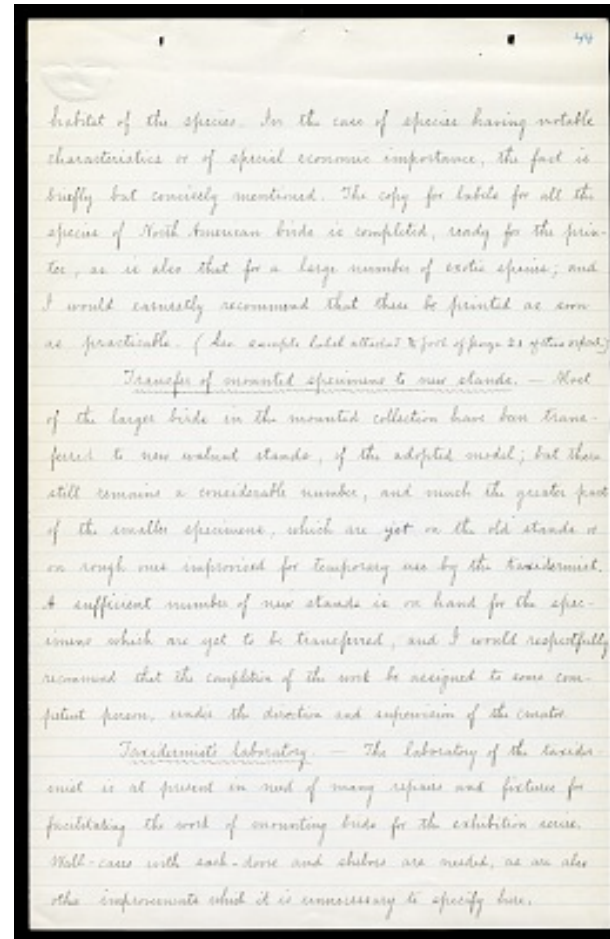 44
habitat of the species. In the case of species having notable
characteristics or of special economic importance, the fact is
briefly but concisely mentioned. The copy for labels for all the
species of North American birds is completed, ready for the prin-
ter, as is also that for a large number of exotic species; and
I would earnestly recommend that these be printed as soon
as practicable. (See sample label attached to foot of page 21 of this report.)
Transfer of mounted specimens to new stands. — Most
of the larger birds in the mounted collection have been trans-
ferred to new walnut stands, of the adopted model; but there
still remains a considerable number, and much the greater part
of the smaller specimens, which are yet on the old stands or
on rough ones improvised for temporary use by the taxidermist.
A sufficient number of new stands is on hand for the spec-
imens which are yet to be transferred, and I would respectfully
recommend that the completion of the work be assigned to some com-
petent person, under the direction and supervision of the curator.
Taxidermist's laboratory. — The laboratory of the taxider-
mist is at present in need of many repairs and fixtures for
facilitating the work of mounting birds for the exhibition series.
Wall-cases with sash-doors and shelves are needed, as are also
other improvements which it is unnecessary to specify here.